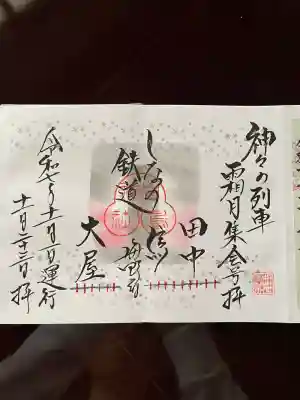 神々の列車
霜月集会号拝
田中
しなの鉄道
大屋
令和七年十一月一日運行
十一月二十三日拝